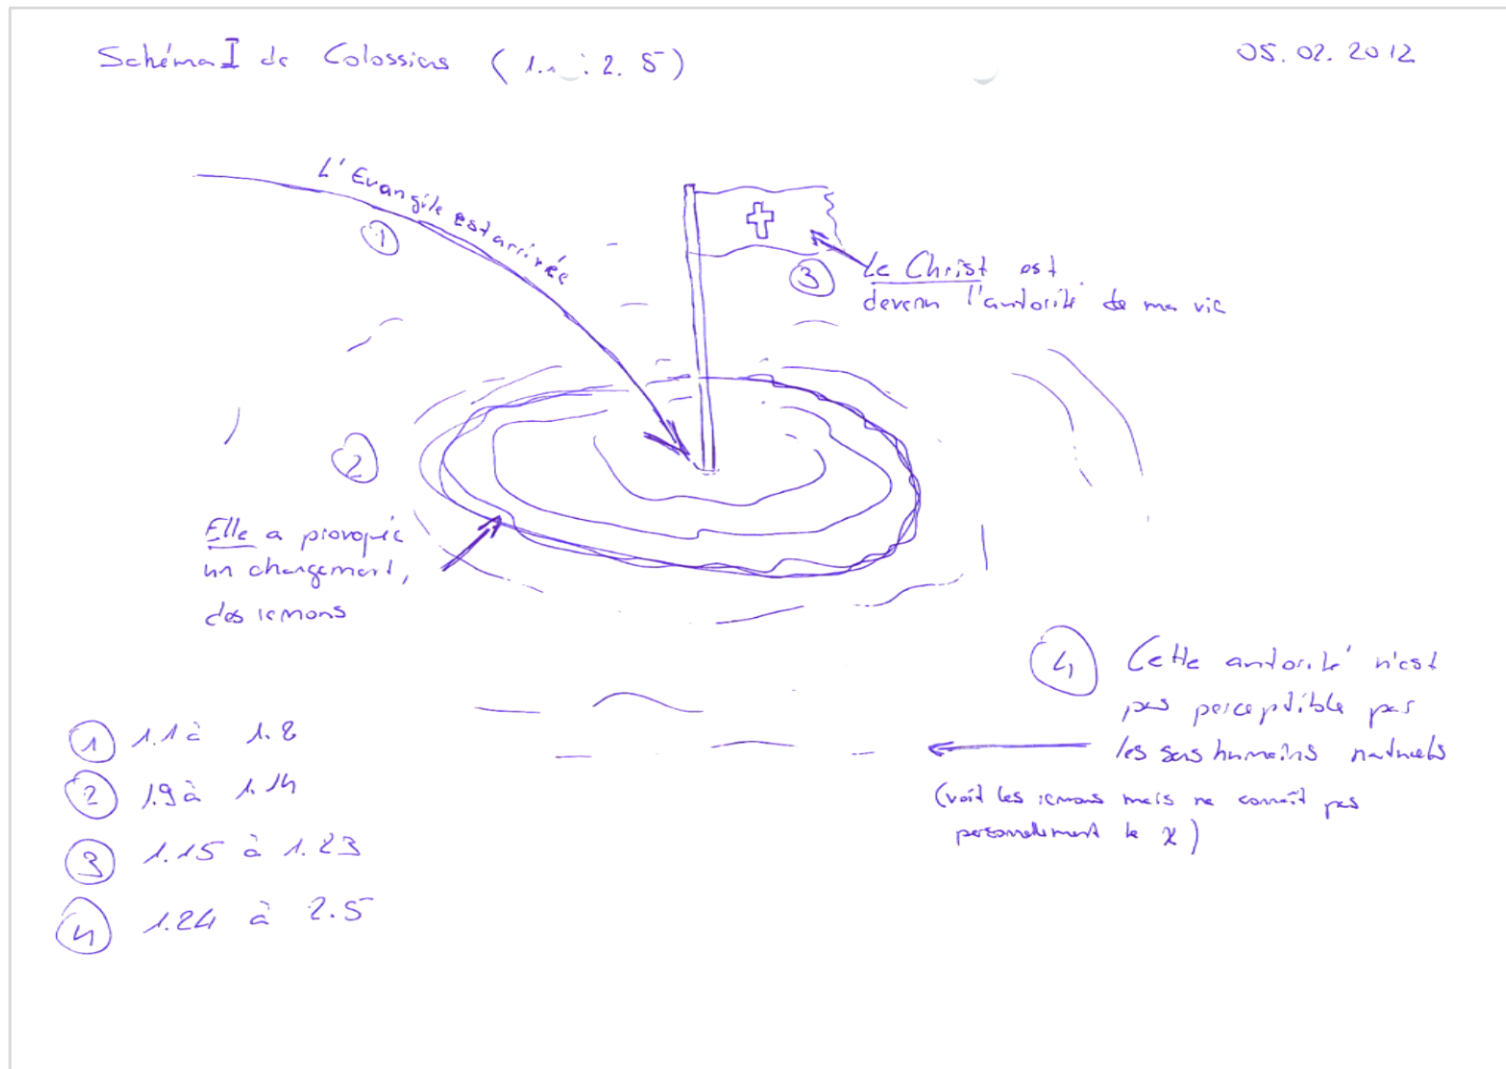 Schéma I de Colossiens (1.1 : 2.5)
05.02.2012
L'Evangile est arrivée
1
3
Le Christ est
devenu l'autorité de ma vie
2
Elle a provoqué
un changement,
des remous
4 Cette autorité n'est
pas perceptible par
les sens humains naturels
(voit les remous mais ne connaît pas
personnellement le χ)
1 1.1 à 1.8
2 1.9 à 1.14
3 1.15 à 1.23
4 1.24 à 2.5